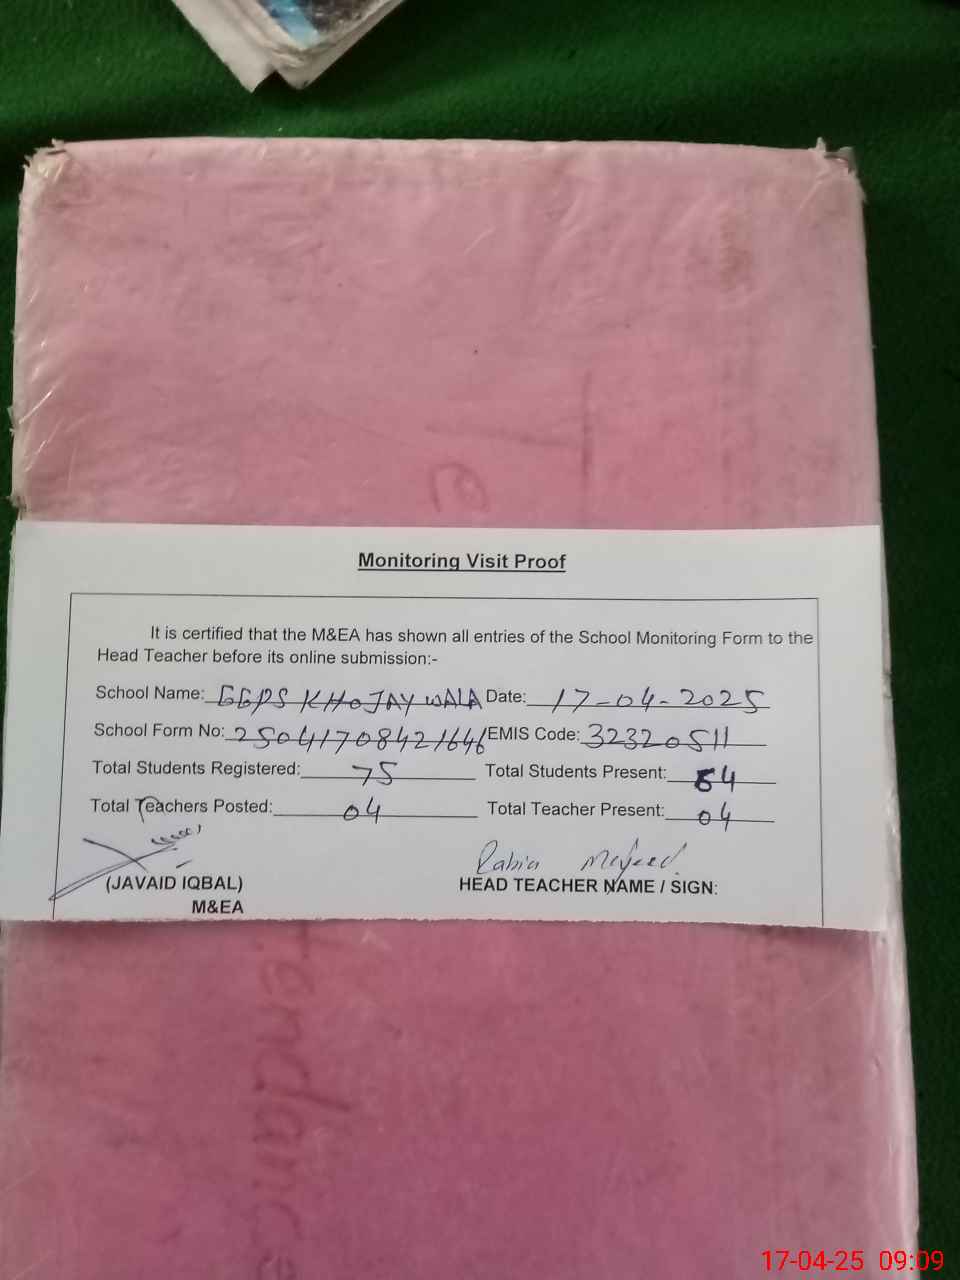 Monitoring Visit Proof
It is certified that the M&EA has shown all entries of the School Monitoring Form to the
Head Teacher before its online submission:-
School Name: GGPS KHOJAY WALA Date: 17-04-2025
School Form No: 25041708421646 EMIS Code: 32320511
Total Students Registered: 75 Total Students Present: 64
Total Teachers Posted: 04 Total Teacher Present: 04
Rabia Majeed
(JAVAID IQBAL) HEAD TEACHER NAME / SIGN:
M&EA
17-04-25 09:09